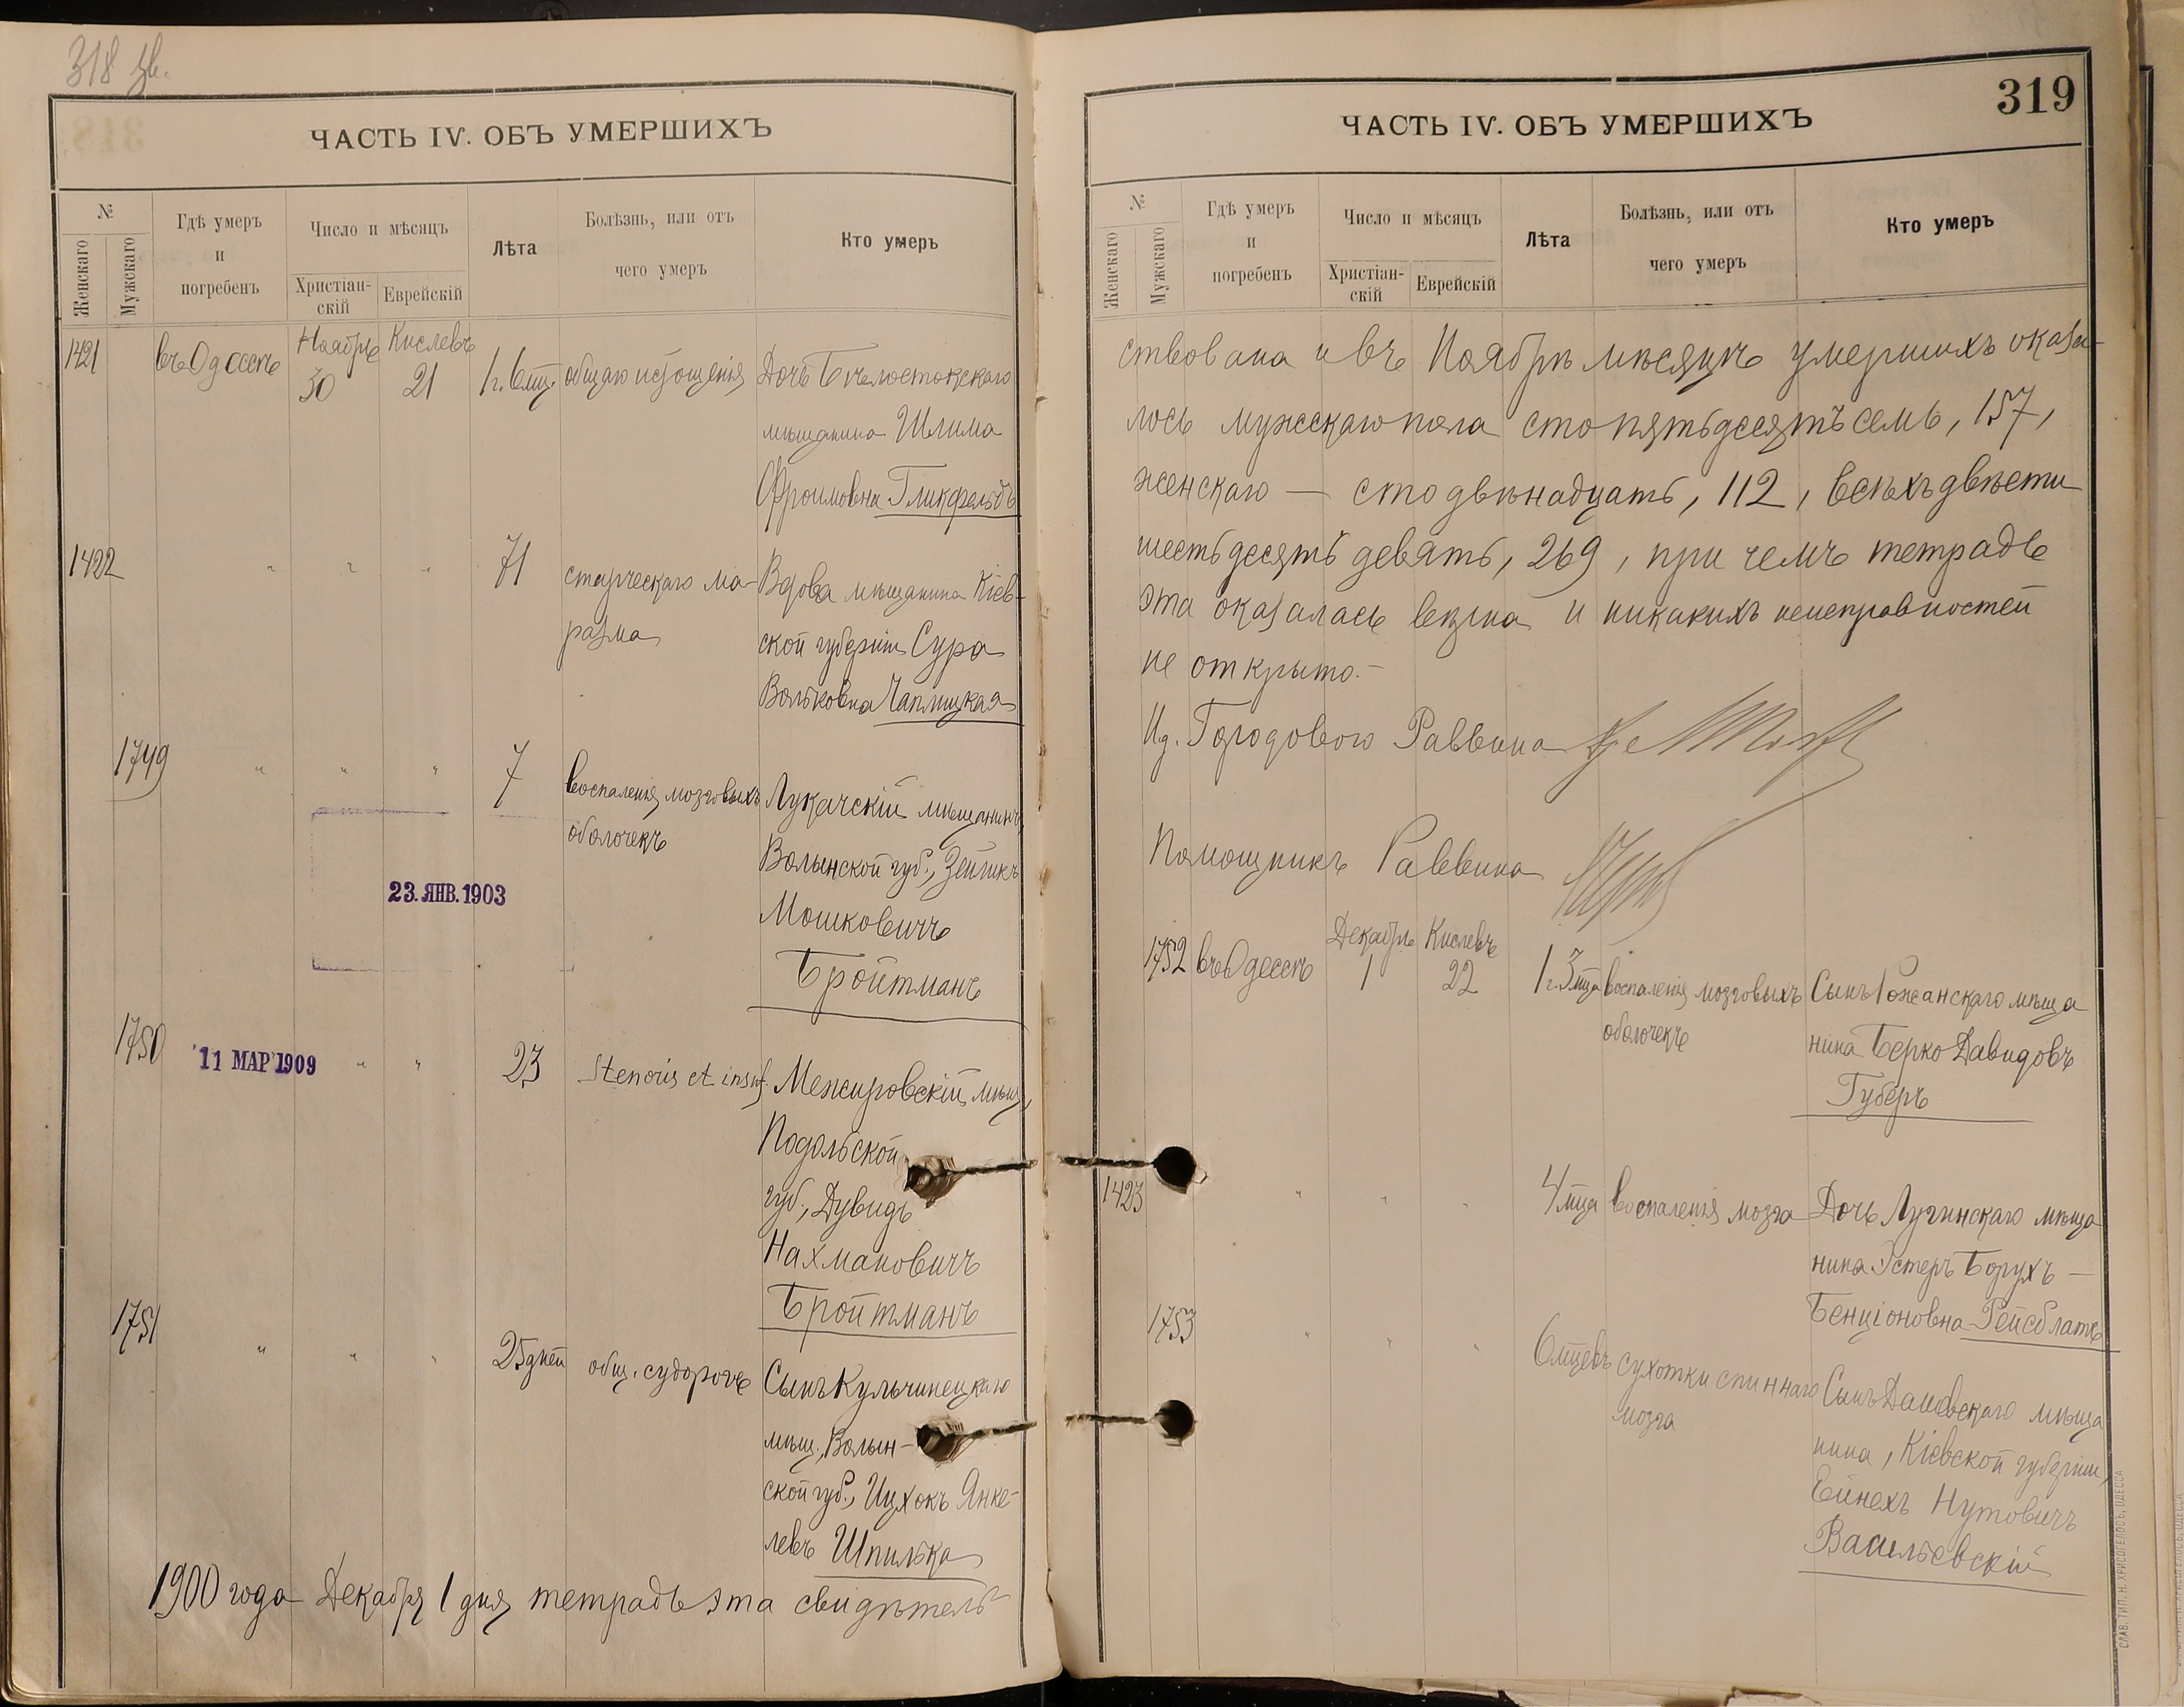 318 зв.
ЧАСТЬ IV. ОБЪ УМЕРШИХЪ
№
Женскаго
Мужскаго
Гдѣ умеръ
и
погребенъ
Число и мѣсяцъ
Христіан-
скій
Еврейскій
Лѣта
Болѣзнь, или отъ
чего умеръ
Кто умеръ
1421 въ Одессѣ Ноябрь 30 Кислевъ 21 1 г. 6 мц. общаго истощенія Дочь Бѣлостокскаго
мѣщанина Шлима
Фроимовна Гликфельдъ
1422 " " " 71 старческаго ма-
разма
Вдова мѣщанина Кіев-
ской губерніи Сура
Вольковна Чаплицкая
1749 " " " 7 воспаленія мозговыхъ
оболочекъ
Лукачскій мѣщанинъ,
Волынской губ., Зейликъ
Мошковичъ
Бройтманъ
23. ЯНВ. 1903
1750 " " 23 Stenosis et insuf. Межировскій мѣщ.,
Подольской
губ., Дувидъ
Нахмановичъ
Бройтманъ
11 МАР 1909
1751 " " " 25 дней общ. судорогъ Сынъ Кульчинецкаго
мѣщ., Волын-
ской губ., Ицхокъ Янке-
левъ Шпилька
1900 года Декабря 1 дня тетрадь эта свидѣтель-
319
ЧАСТЬ IV. ОБЪ УМЕРШИХЪ
№
Женскаго
Мужскаго
Гдѣ умеръ
и
погребенъ
Число и мѣсяцъ
Христіан-
скій
Еврейскій
Лѣта
Болѣзнь, или отъ
чего умеръ
Кто умеръ
ствована и въ Ноябрѣ мѣсяцѣ умершихъ оказа-
лось мужскаго пола сто пятьдесятъ семь, 157,
женскаго — сто двѣнадцать, 112, всѣхъ двѣсти
шестьдесятъ девять, 269, при чемъ тетрадь
эта оказалась вѣрна и никакихъ неисправностей
не открыто. -
И.д. Городового Раввина
Помощникъ Раввина
1752 въ Одессѣ Декабрь 1 Кислевъ 22 1 г. 3 мца воспаленія мозговыхъ
оболочекъ
Сынъ Рожанскаго мѣща
нина Берко Давидовъ
Губеръ
1423 " " " 4 мца воспаленія мозга Дочь Лугинскаго мѣща
нина Эстеръ Борухъ -
Бенціоновна Рейсблатъ
1753 " " " 6 мцевъ сухотки спиннаго
мозга
Сынъ мѣща
нина, Кіевской губерніи,
Ейнехъ Нутовичъ
Васильевскій
СЛАВ. ТИП. Н. ХРИСОГЕЛОСЪ, ОДЕССА